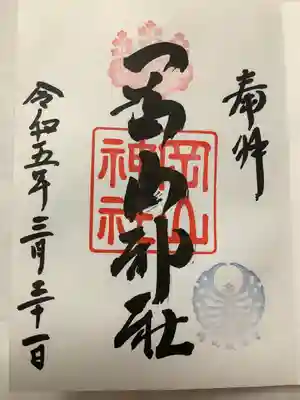 奉拝
岡山神社
岡山
神社
令和五年三月